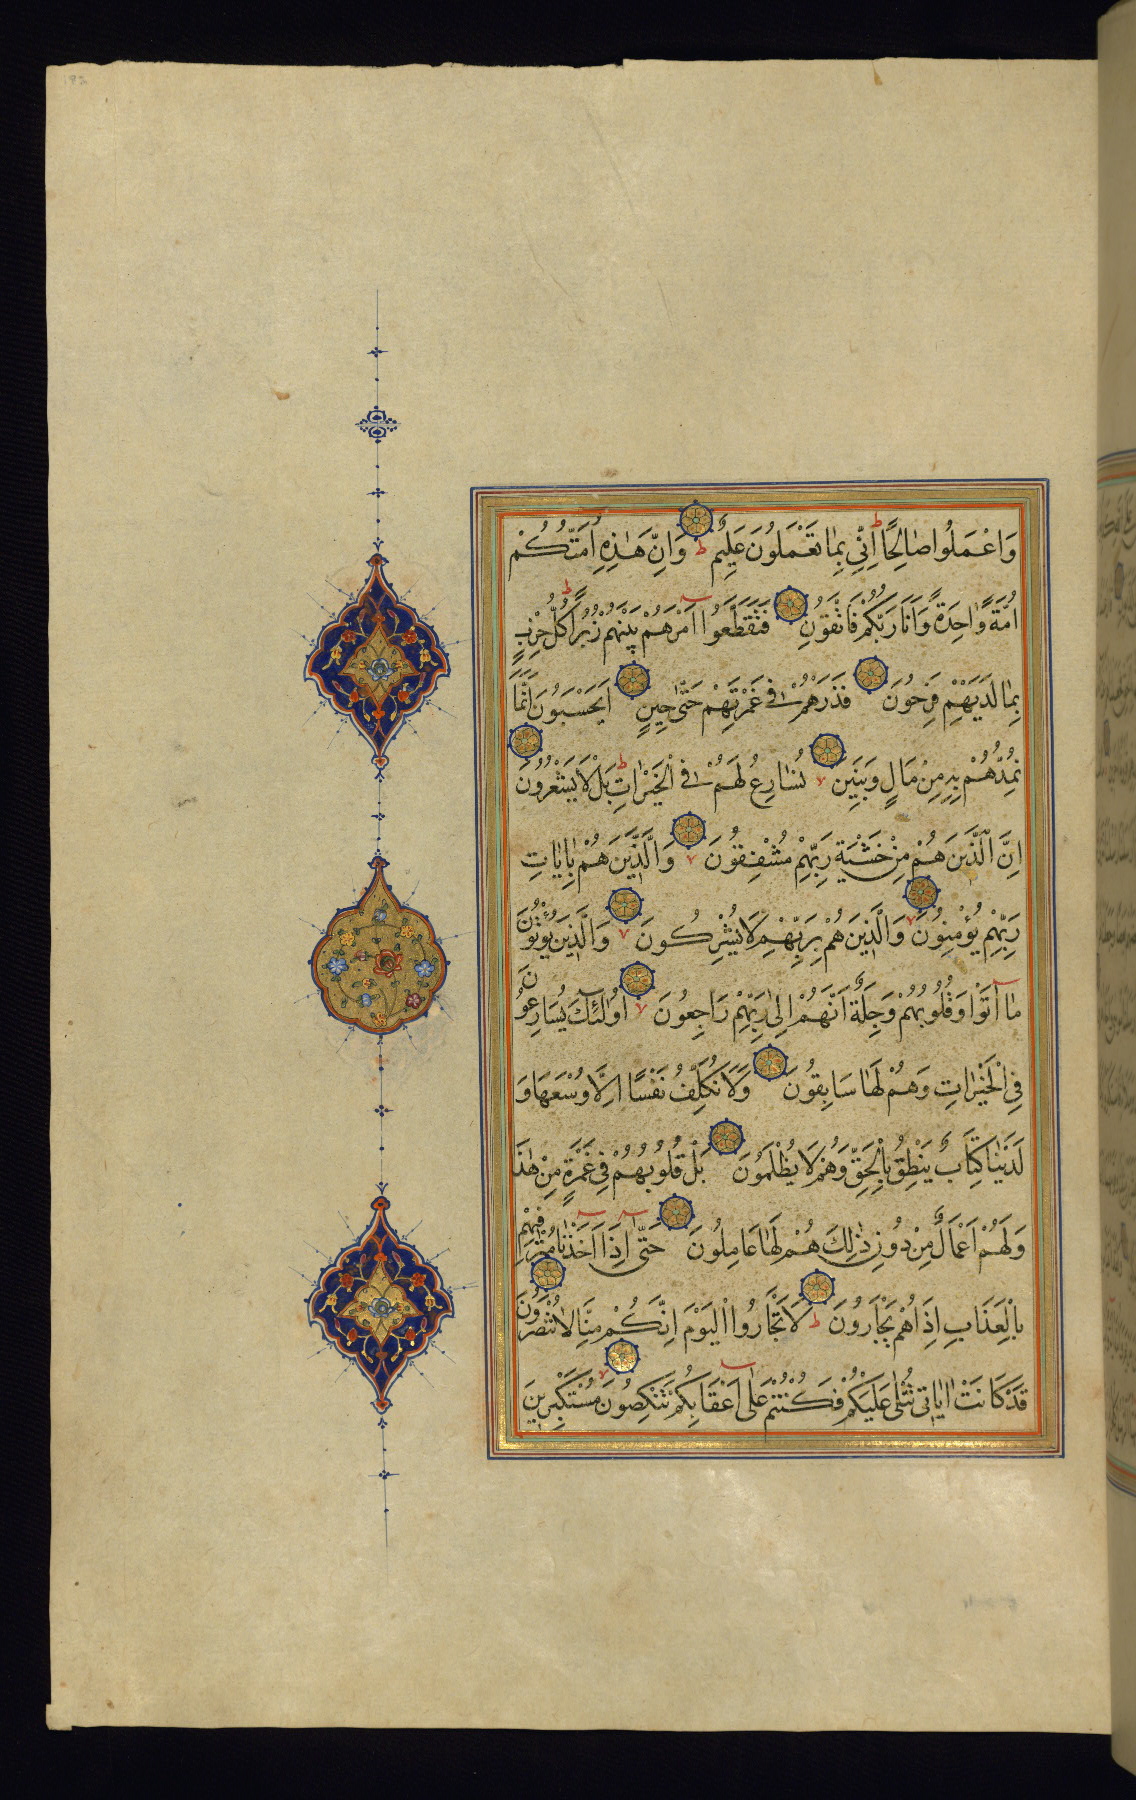 وَاعْمَلُوا صَالِحًا اِنِّي بِمَا تَعْمَلُونَ عَلِيمٌ وَاِنَّ هٰذِهِ اُمَّتُكُمْ
اُمَّةً وَاحِدَةً وَاَنَا رَبُّكُمْ فَاتَّقُونِ فَتَقَطَّعُوا اَمْرَهُمْ بَيْنَهُمْ زُبُرًا كُلُّ حِزْبٍ
بِمَا لَدَيْهِمْ فَرِحُونَ فَذَرْهُمْ فِي غَمْرَتِهِمْ حَتّٰى حِينٍ اَيَحْسَبُونَ اَنَّمَا
نُمِدُّهُمْ بِهِ مِنْ مَالٍ وَبَنِينَ نُسَارِعُ لَهُمْ فِي الْخَيْرَاتِ بَلْ لَا يَشْعُرُونَ
اِنَّ الَّذِينَ هُمْ مِنْ خَشْيَةِ رَبِّهِمْ مُشْفِقُونَ وَالَّذِينَ هُمْ بِاٰيَاتِ
رَبِّهِمْ يُؤْمِنُونَ وَالَّذِينَ هُمْ بِرَبِّهِمْ لَا يُشْرِكُونَ وَالَّذِينَ يُؤْتُونَ
مَا اٰتَوْا وَقُلُوبُهُمْ وَجِلَةٌ اَنَّهُمْ اِلٰى رَبِّهِمْ رَاجِعُونَ اُولٰئِكَ يُسَارِعُونَ
فِي الْخَيْرَاتِ وَهُمْ لَهَا سَابِقُونَ وَلَا نُكَلِّفُ نَفْسًا اِلَّا وُسْعَهَا وَ
لَدَيْنَا كِتَابٌ يَنْطِقُ بِالْحَقِّ وَهُمْ لَا يُظْلَمُونَ بَلْ قُلُوبُهُمْ فِي غَمْرَةٍ مِنْ هٰذَا
وَلَهُمْ اَعْمَالٌ مِنْ دُونِ ذٰلِكَ هُمْ لَهَا عَامِلُونَ حَتّٰى اِذَا اَخَذْنَا مُتْرَفِيهِمْ
بِالْعَذَابِ اِذَا هُمْ يَجْاَرُونَ لَا تَجْاَرُوا الْيَوْمَ اِنَّكُمْ مِنَّا لَا تُنْصَرُونَ
قَدْ كَانَتْ اٰيَاتِي تُتْلٰى عَلَيْكُمْ فَكُنْتُمْ عَلٰى اَعْقَابِكُمْ تَنْكِصُونَ مُسْتَكْبِرِينَ